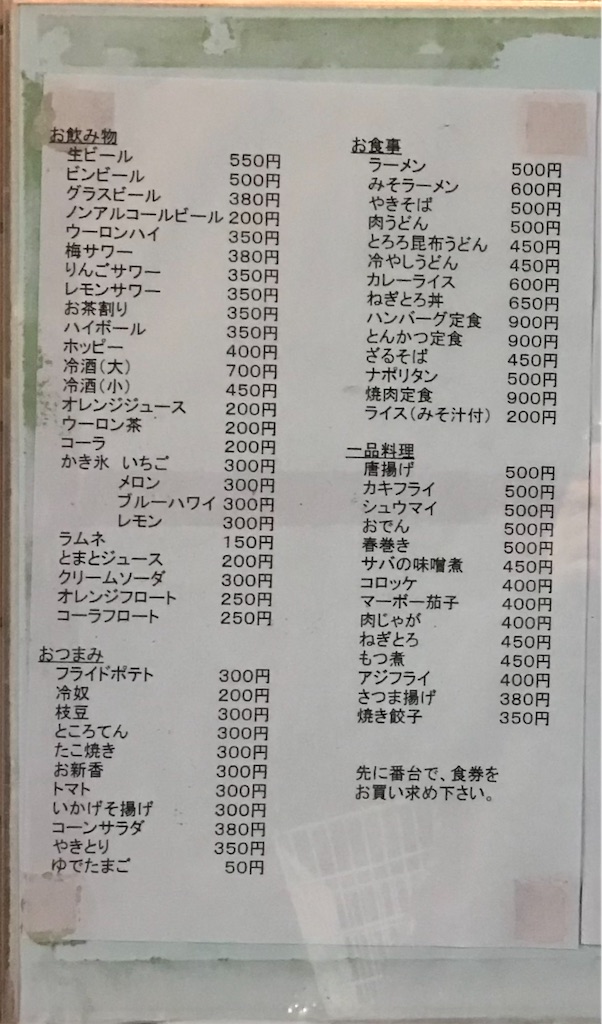 お飲み物
生ビール 550円
ビンビール 500円
グラスビール 380円
ノンアルコールビール 200円
ウーロンハイ 350円
梅サワー 380円
りんごサワー 350円
レモンサワー 350円
お茶割り 350円
ハイボール 350円
ホッピー 400円
冷酒(大) 700円
冷酒(小) 450円
オレンジジュース 200円
ウーロン茶 200円
コーラ 200円
かき氷 いちご 300円
メロン 300円
ブルーハワイ 300円
レモン 300円
ラムネ 150円
とまとジュース 200円
クリームソーダ 300円
オレンジフロート 250円
コーラフロート 250円
おつまみ
フライドポテト 300円
冷奴 200円
枝豆 300円
ところてん 300円
たこ焼き 300円
お新香 300円
トマト 300円
いかげそ揚げ 300円
コーンサラダ 380円
やきとり 350円
ゆでたまご 50円
お食事
ラーメン 500円
みそラーメン 600円
やきそば 500円
肉うどん 500円
とろろ昆布うどん 450円
冷やしうどん 450円
カレーライス 600円
ねぎとろ丼 650円
ハンバーグ定食 900円
とんかつ定食 900円
ざるそば 450円
ナポリタン 500円
焼肉定食 900円
ライス(みそ汁付) 200円
一品料理
唐揚げ 500円
カキフライ 500円
シュウマイ 500円
おでん 500円
春巻き 500円
サバの味噌煮 450円
コロッケ 400円
マーボー茄子 400円
肉じゃが 400円
ねぎとろ 450円
もつ煮 450円
アジフライ 400円
さつま揚げ 380円
焼き餃子 350円
先に番台で、食券を
お買い求め下さい。